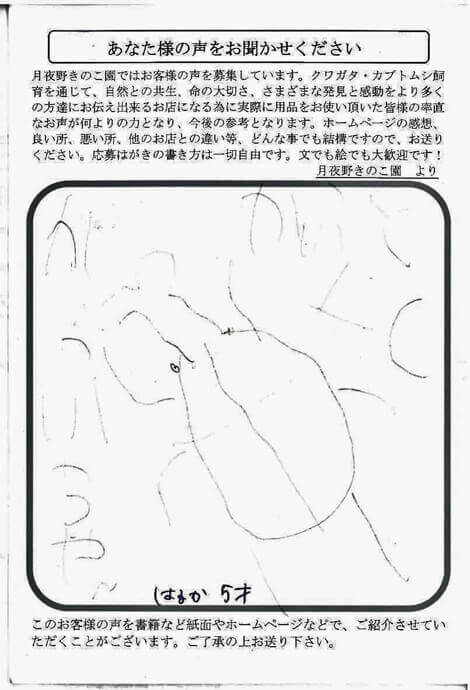 あなた様の声をお聞かせください
月夜野きのこ園ではお客様の声を募集しています。クワガタ・カブトムシ飼
育を通じて、自然との共生、命の大切さ、さまざまな発見と感動をより多く
の方達にお伝え出来るお店になる為に実際に用品をお使い頂いた皆様の率直
なお声が何よりの力となり、今後の参考となります。ホームページの感想、
良い所、悪い所、他のお店との違い等、どんな事でも結構ですので、お送り
ください。応募はがきの書き方は一切自由です。文でも絵でも大歓迎です！
月夜野きのこ園　より
はるか 5才
このお客様の声を書籍など紙面やホームページなどで、ご紹介させてい
ただくことがございます。ご了承の上お送り下さい。